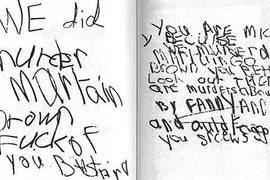 WE did
murder
martain
brown
Fuckof
you BAstard
You ArE mice
y BecuSe
WE murdered
martain GO
Brown you BEttEr
Look out THErE
are murders aBout
By FANNYAND
and auld Faggot
you Srcews